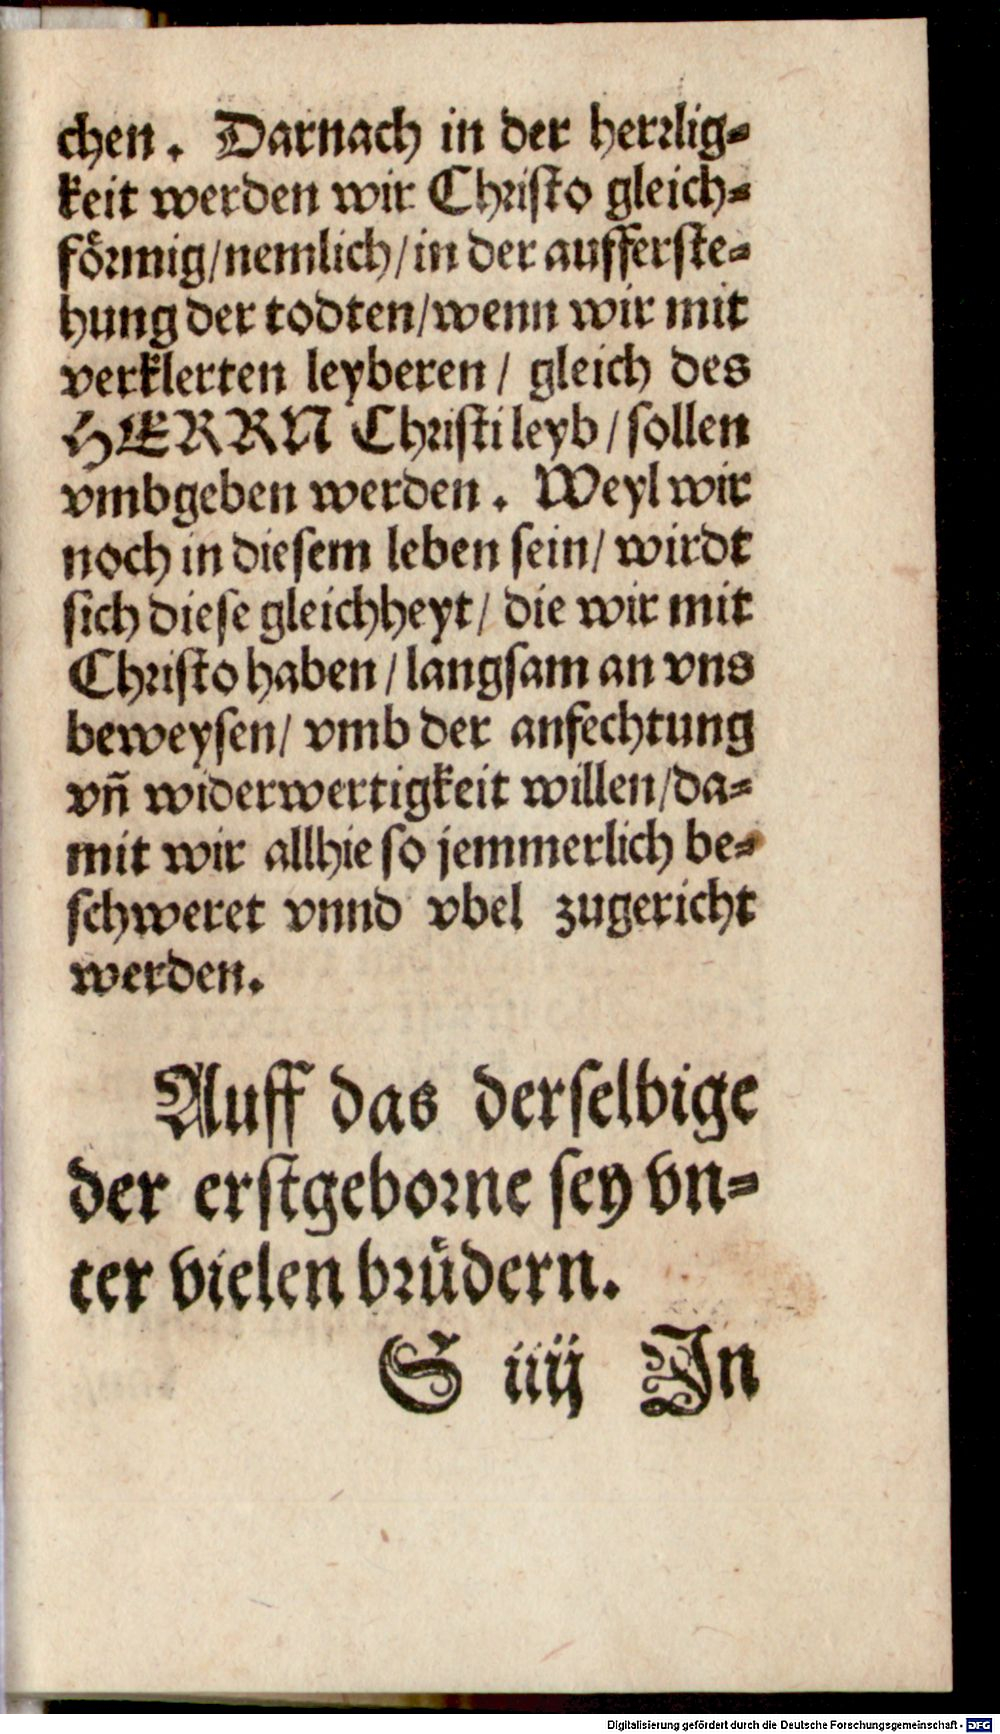 chen. Darnach in der herrlig-
keit werden wir Christo gleich-
förmig/nemlich/in der aufferste-
hung der todten/wenn wir mit
verklerten leyberen/ gleich des
HERRN Christi leyb/sollen
vmbgeben werden. Weyl wir
noch in diesem leben sein/ wirdt
sich diese gleichheyt/ die wir mit
Christo haben/langsam an vns
beweysen/ vmb der anfechtung
vñ widerwertigkeit willen/da-
mit wir allhie so jemmerlich be-
schweret vnnd vbel zugericht
werden.
Auff das derselbige
der erstgeborne sey vn-
ter vielen brüdern.
S iiij In
Digitalisierung gefördert durch die Deutsche Forschungsgemeinschaft - DFG